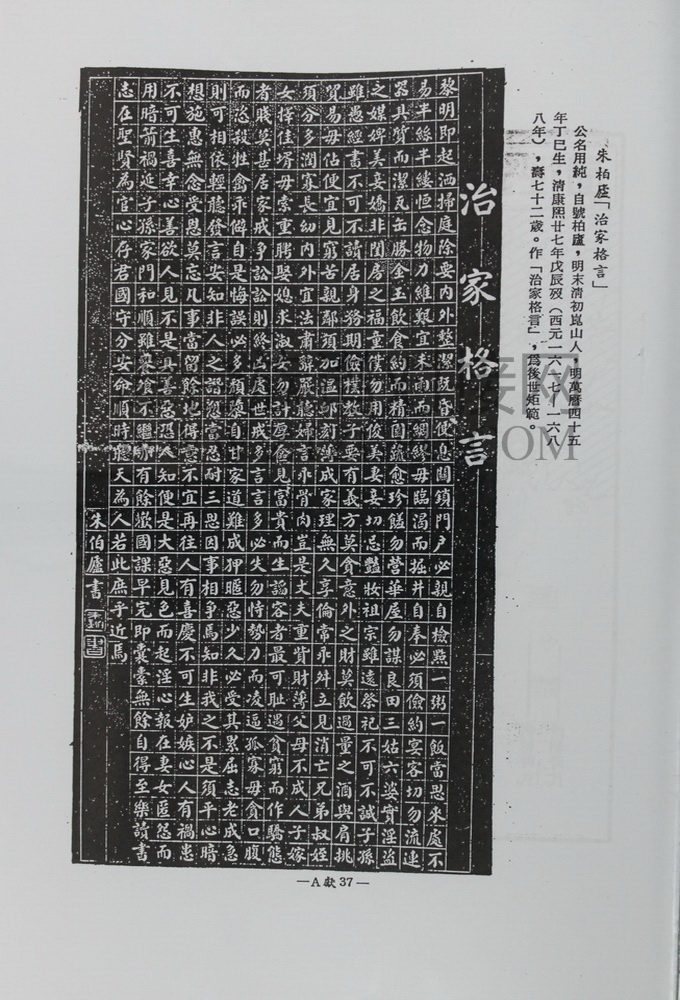 朱柏廬「治家格言」
公名用純，自號柏廬，明末清初崑山人，明萬曆四十五
年丁巳生，清康熙廿七年戊辰歿（西元一六一七—一六八
八年），壽七十二歲。作「治家格言」，為後世矩範。
治家格言
黎明即起洒掃庭除要內外整潔既昏便息關鎖門戶必親自檢點一粥一飯當思來處不
易半絲半縷恒念物力維艱宜未雨而綢繆毋臨渴而掘井自奉必須儉約宴客切勿流連
器具質而潔瓦缶勝金玉飲食約而精園蔬愈珍饈勿營華屋勿謀良田三姑六婆實淫盜
之媒婢美妾嬌非閨房之福童僕勿用俊美妻妾切忌艷妝祖宗雖遠祭祀不可不誠子孫
雖愚經書不可不讀居身務期儉樸教子要有義方莫貪意外之財莫飲過量之酒與肩挑
貿易毋佔便宜見窮苦親鄰須加溫卹刻薄成家理無久享倫常乖舛立見消亡兄弟叔姪
須分多潤寡長幼內外宜法肅辭嚴聽婦言乖骨肉豈是丈夫重貲財薄父母不成人子嫁
女擇佳壻毋索重聘娶媳求淑女勿計厚奩見富貴而生諂容者最可恥遇貧窮而作驕態
者賤莫甚居家戒爭訟訟則終凶處世戒多言言多必失勿恃勢力而凌逼孤寡毋貪口腹
而恣殺牲禽乖僻自是悔誤必多頹惰自甘家道難成狎暱惡少久必受其累屈志老成急
則可相依輕聽發言安知非人之譖愬當忍耐三思因事相爭焉知非我之不是須平心暗
想施惠無念受恩莫忘凡事當留餘地得意不宜再往人有喜慶不可生妒嫉心人有禍患
不可生喜幸心善欲人見不是真善惡恐人知便是大惡見色而起淫心報在妻女匿怨而
用暗箭禍延子孫家門和順雖饔飧不繼亦有餘歡國課早完即囊橐無餘自得至樂讀書
志在聖賢為官心存君國守分安命順時聽天為人若此庶乎近焉
朱伯廬書
—A獻37—